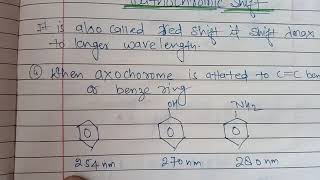 Bathochromic Shift
It is also called red shift & shift λmax
to longer wave length.
④ When axochorome is attated to C=C ben
or benze ring
OH NH2
254nm 270nm 280nm